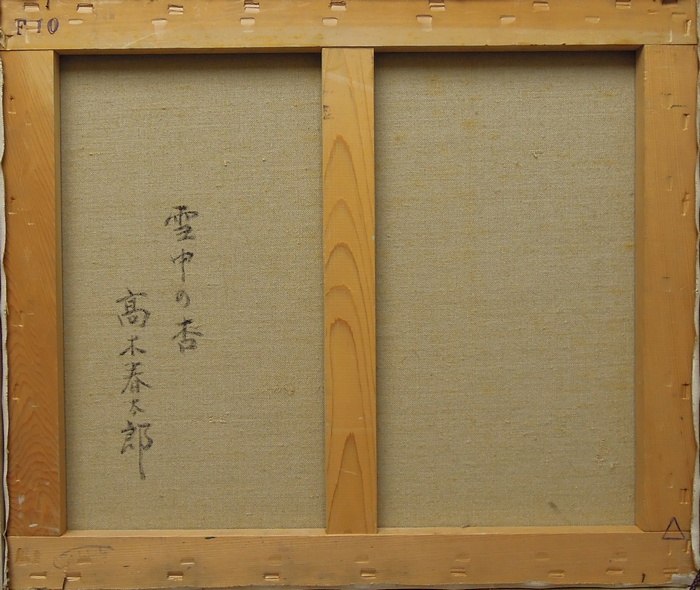 F10
雪中の杏
高木春太郎